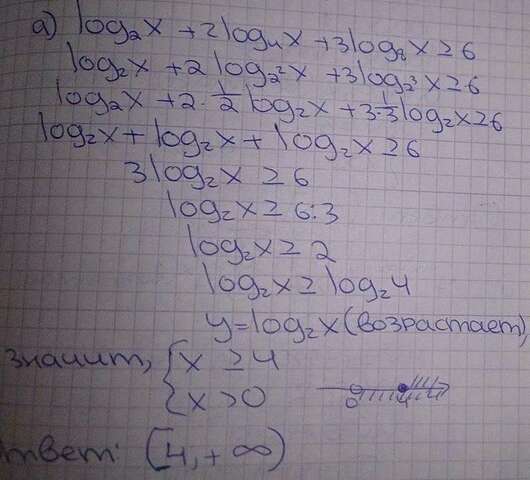 а) log₂x + 2log₄x + 3log₈x ≥ 6
log₂x + 2 log₂²x + 3log₂³x ≥ 6
log₂x + 2·1/2 log₂x + 3·1/3 log₂x ≥ 6
log₂x + log₂x + log₂x ≥ 6
3log₂x ≥ 6
log₂x ≥ 6:3
log₂x ≥ 2
log₂x ≥ log₂4
y=log₂x (возрастает)
значит, { x ≥ 4
{ x > 0
0 4
твет: [4, +∞)